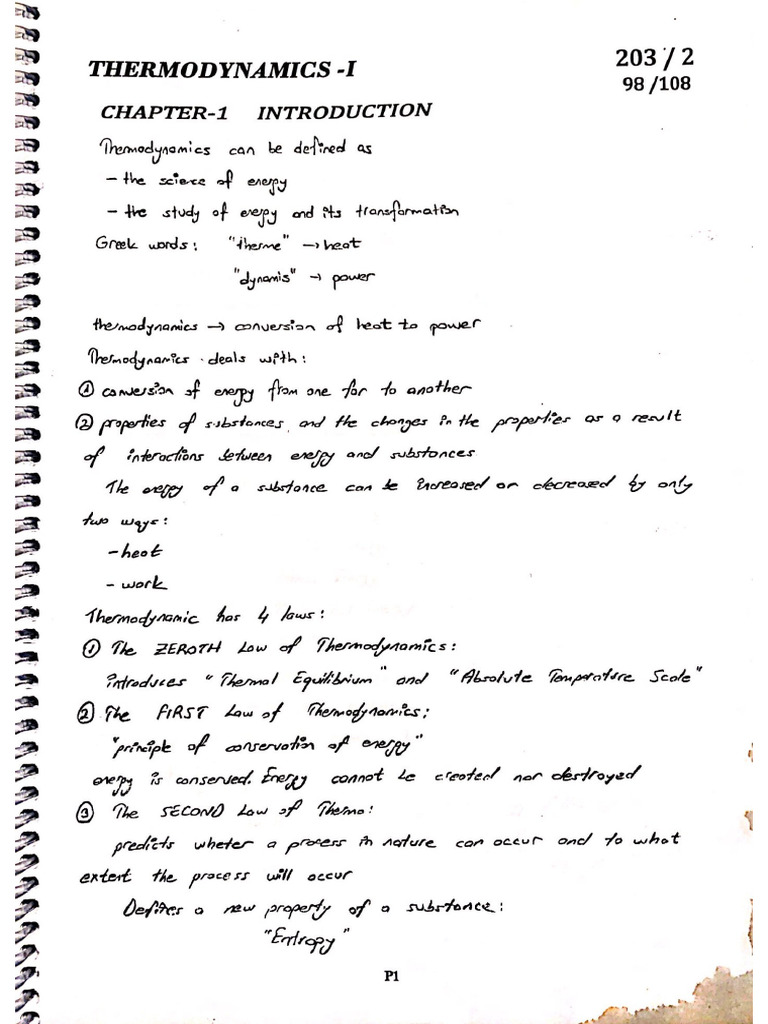 THERMODYNAMICS -I
203 / 2
98 /108
CHAPTER-1 INTRODUCTION
Thermodynamics can be defined as
- the science of energy
- the study of energy and its transformation
Greek words: "therme" → heat
"dynamis" → power
thermodynamics → conversion of heat to power
Thermodynamics deals with:
① conversion of energy from one for to another
② properties of substances and the changes in the properties as a result
of interactions between energy and substances
The energy of a substance can be increased or decreased by only
two ways:
- heat
- work
Thermodynamic has 4 laws:
① The ZEROTH Law of Thermodynamics:
introduces "Thermal Equilibrium" and "Absolute Temperature Scale"
② The FIRST Law of Thermodynamics:
"principle of conservation of energy"
energy is conserved. Energy cannot be created nor destroyed
③ The SECOND Law of Thermo:
predicts wheter a process in nature can occur and to what
extent the process will occur
Defines a new property of a substance:
"Entropy"
P1